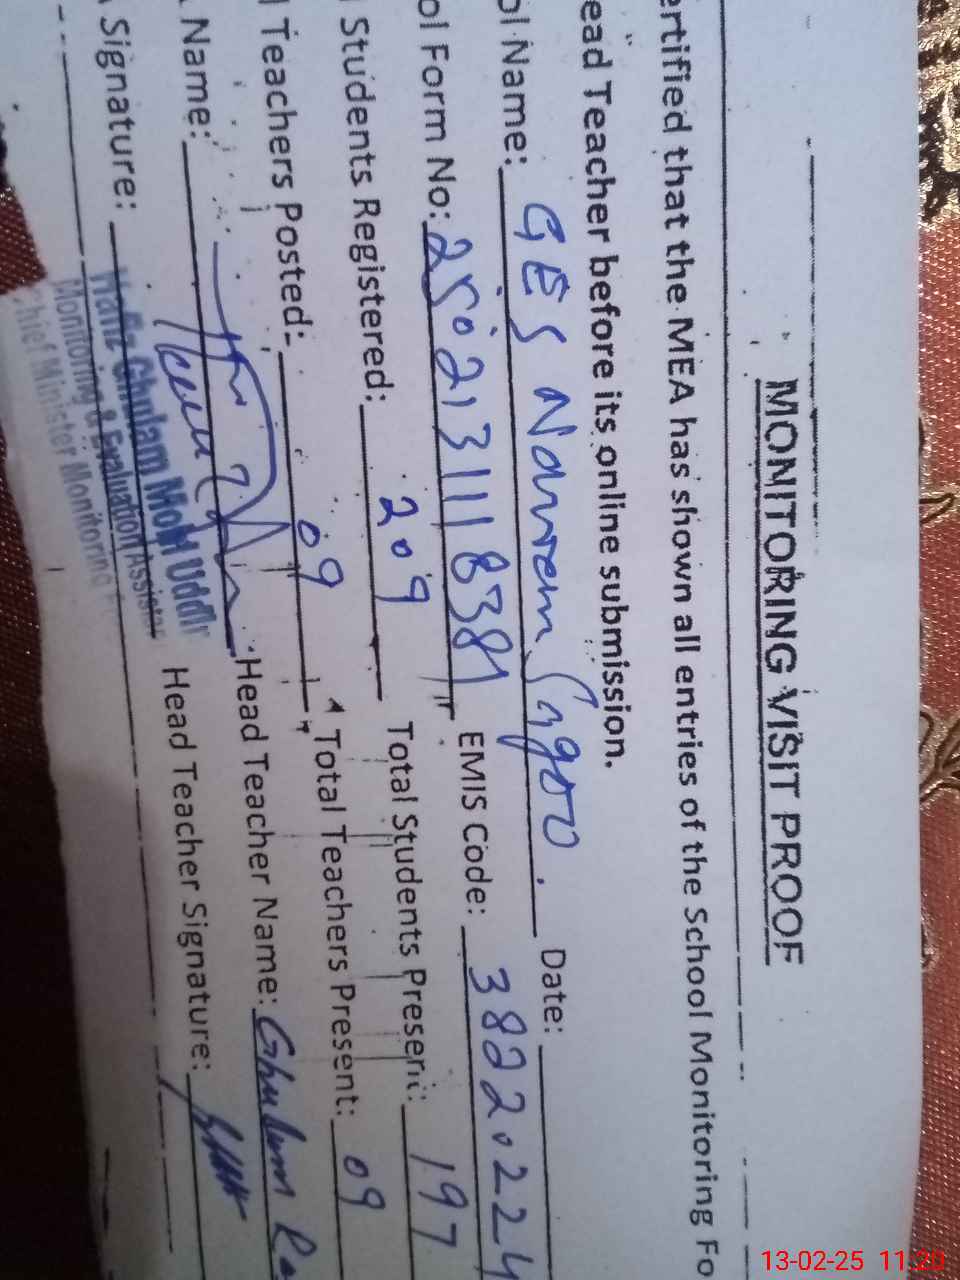 MONITORING VISIT PROOF
ertified that the MEA has shown all entries of the School Monitoring Fo
ead Teacher before its online submission.
ol Name: GES Date:
ol Form No: EMIS Code: 3822022
Students Registered: 209 Total Students Present: 197
Teachers Posted: 09 Total Teachers Present: 09
Name: Head Teacher Name: Ghulam
Signature: Head Teacher Signature:
Hafiz Ghulam
Monitoring & Evaluation Assistan
Chief Minister Monitoring
13-02-25 11:20